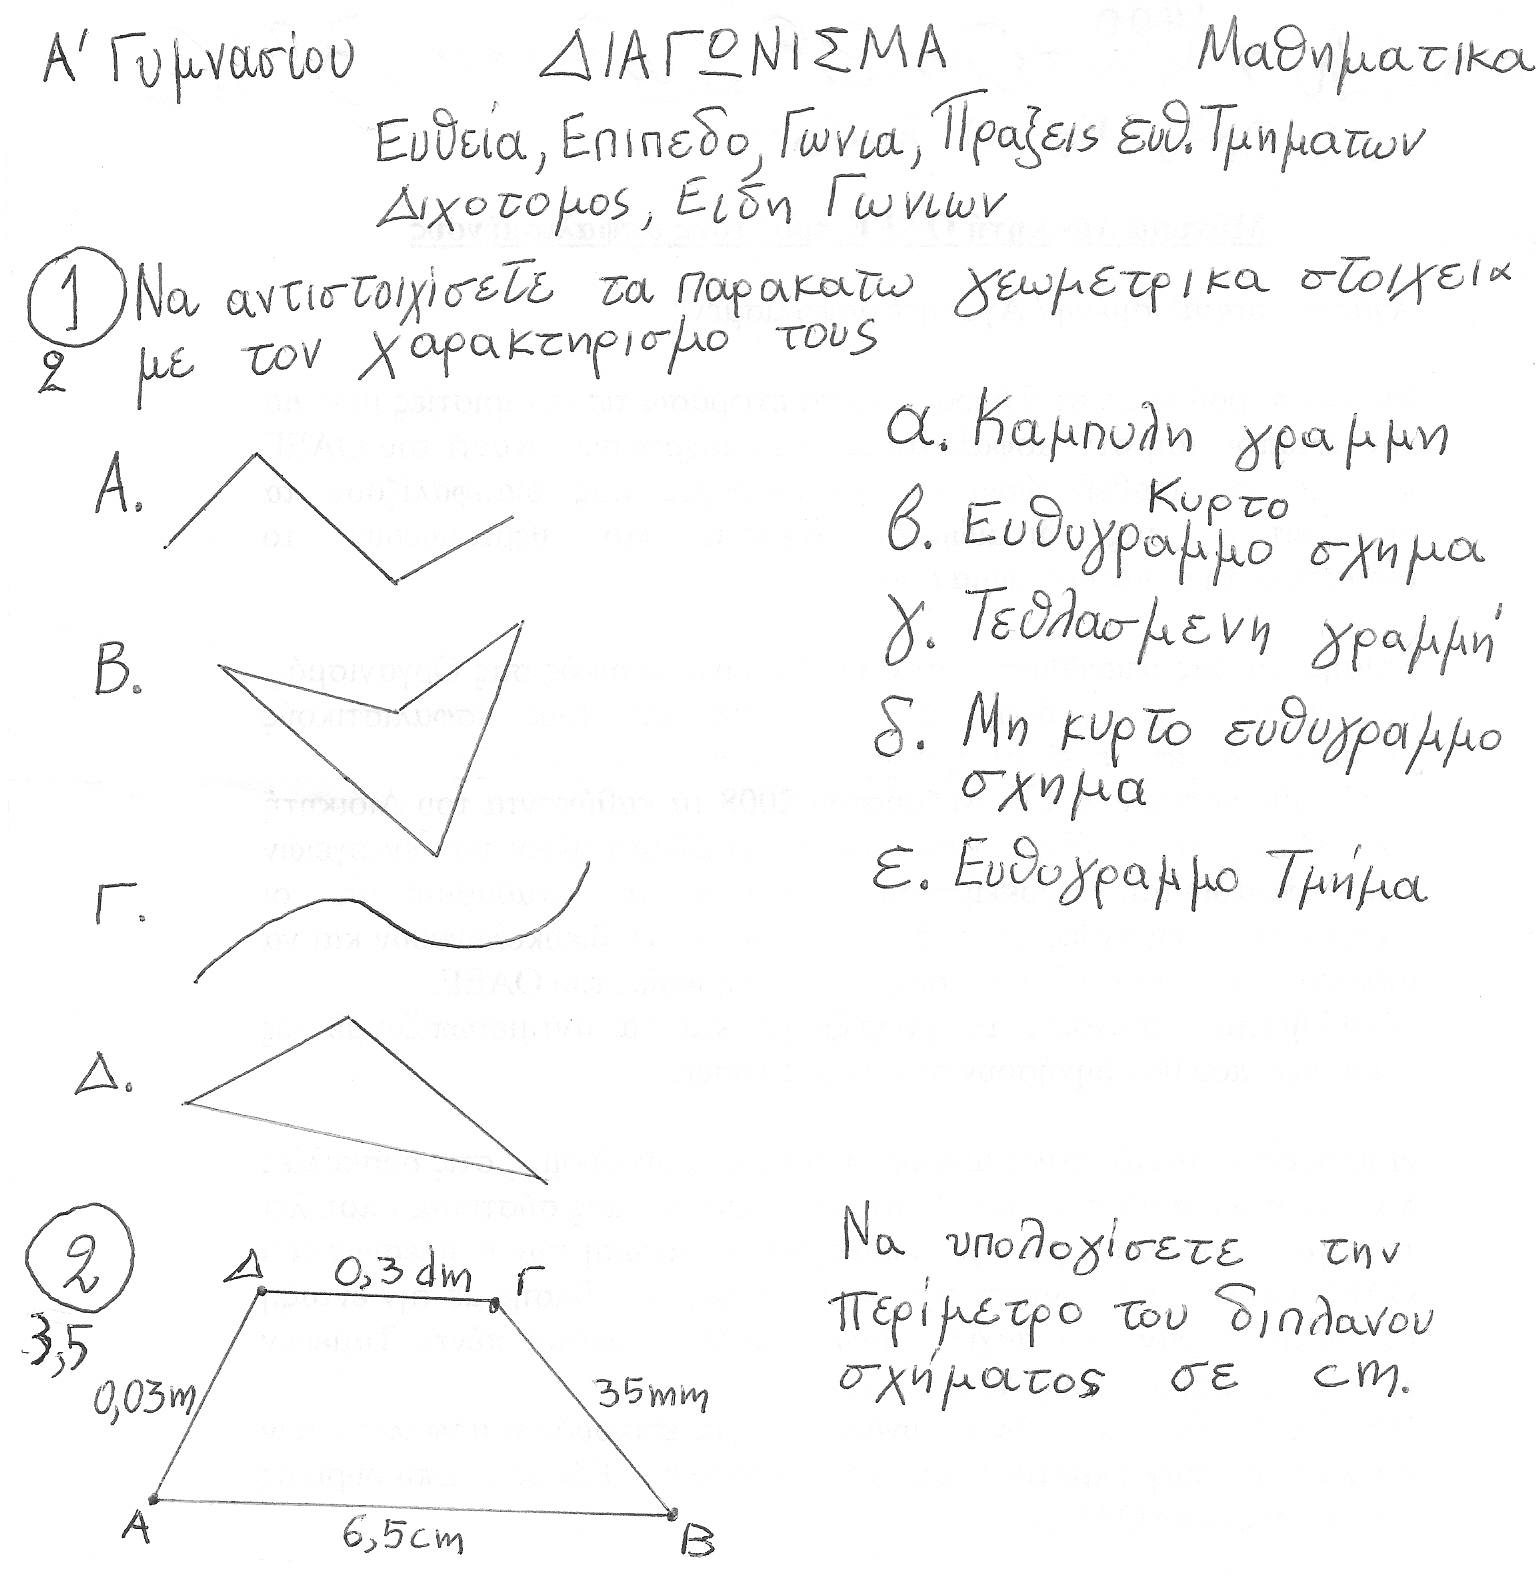 Α' Γυμνασίου ΔΙΑΓΩΝΙΣΜΑ Μαθηματικα
Ευθεία, Επιπεδο, Γωνια, Πραξεις ευθ. Τμηματων
Διχοτομος, Ειδη Γωνιων
1 Να αντιστοιχίσετε τα παρακατω γεωμετρικα στοιχεια
2 με τον χαρακτηρισμο τους
α. Καμπυλη γραμμη
Α.
Κυρτο
β. Ευθυγραμμο σχημα
γ. Τεθλασμενη γραμμή
Β.
δ. Μη κυρτο ευθυγραμμο
σχημα
ε. Ευθυγραμμο Τμήμα
Γ.
Δ.
2
3,5
Να υπολογίσετε την
περίμετρο του διπλανου
σχήματος σε cm.
Δ 0,3 dm Γ
0,03m 35mm
Α 6,5cm Β